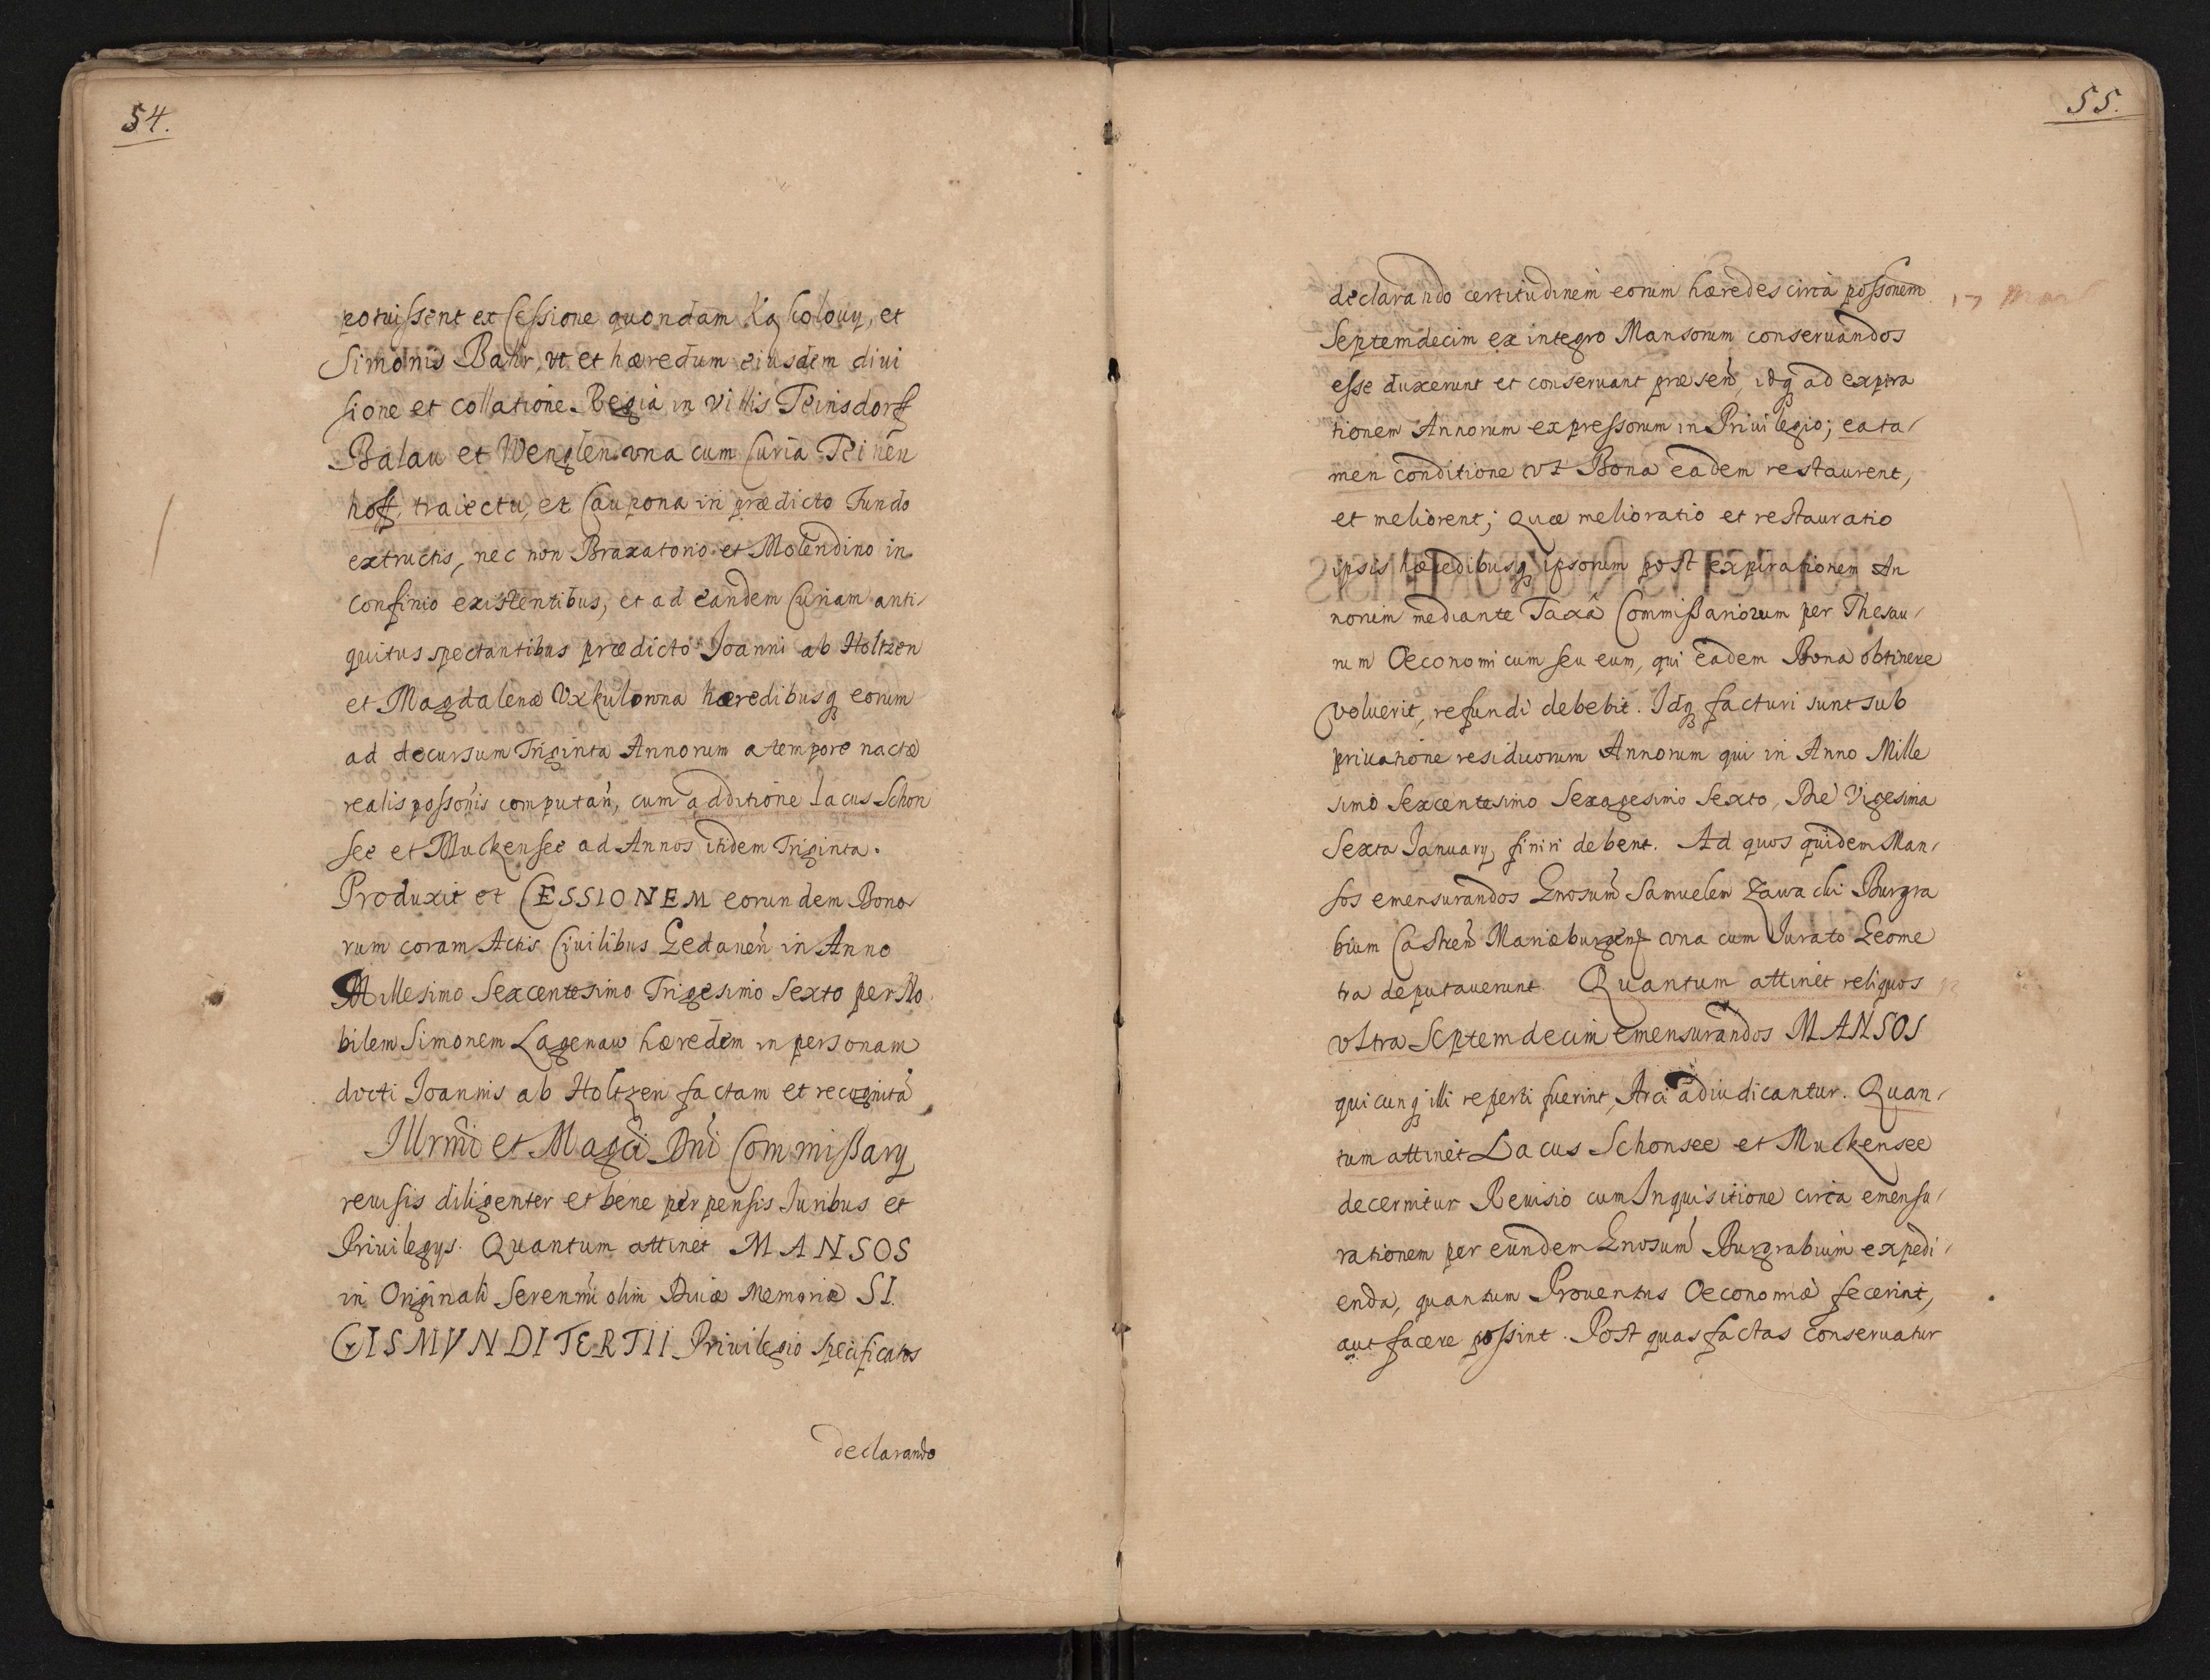 54.
potuissent ex cessione quondam Kascolouy, et
Simonis Bahr, ut et hæredum eiusdem diui
sione et collatione Regia in Villis Teinsdorff
Balau et Wenglen una cum Curia Teinen
hoff, traiectu, et Caupona in prædicto Fundo
extructis, nec non Braxatorio et Molendino in
confinio existentibus, et ad eandem Curiam anti/
quitus spectantibus prædicto Joanni ab Holtzen
et Magdalenæ Vxkulowna hæredibusq eorum
ad decursum Triginta Annorum a tempore nactæ
realis possonis computan, cum additione Lacus Schon
see et Muckensee ad Annos itidem Triginta.
Produxit et CESSIONEM eorundem Bono/
rum coram Actis Ciuilibus Gedanen in Anno
Millesimo Sexcentesimo Trigesimo Sexto per No
bilem Simonem Lagenaw hæredem in personam
dicti Joannis ab Holtzen factam et recognitã
Illrmi et Magci Dni Commissary
reuisis diligenter et bene perpensis Iuribus et
Priuilegys. Quantum attinet MANSOS
in Originali Serenmi olim Diuæ Memoriæ SI
GISMVNDI TERTII Priuilegio specificatos
declarando
55.
declarando certitudinem eorum hæredes circa possonem 17
Septemdecim ex integro Mansorum conseruandos
esse duxerunt et conseruant præsen, idq ad expira
tionem Annorum expressorum in Priuilegio; ea ta/
men conditione vt Bona eadem restaurent,
et meliorent; Quæ melioratio et restauratio
ipsis hæredibusq ipsorum post expirationem An
norum mediante Taxâ Commissariorum per Thesau/
rum Oeconomicum seu eum, qui eadem Bona obtinere
voluerit, refundi debebit. Idq facturi sunt sub
priuatione residuorum Annorum qui in Anno Mille
simo Sexcentesimo Sexagesimo Sexto, Die Vigesima
Sexta January, finiri debent. Ad quos quidem Man/
sos emensurandos Gnosum Samuelem Zawacki Burgra
bium Castren Mariæburgen una cum Iurato Geome
tra deputauerunt. Quantum attinet reliquos
vltra Septemdecim emensurandos MANSOS
quicunq illi reperti fuerint, Arci adiudicantur. Quan/
tum attinet Lacus Schonsee et Muckensee
decernitur Reuisio cum Inquisitione circa emensu/
rationem per eundem Gnosum Burgrabium expedi/
enda, quantum Prouentus Oeconomiæ fecerint,
aut facere possint. Post quas factas conseruatur